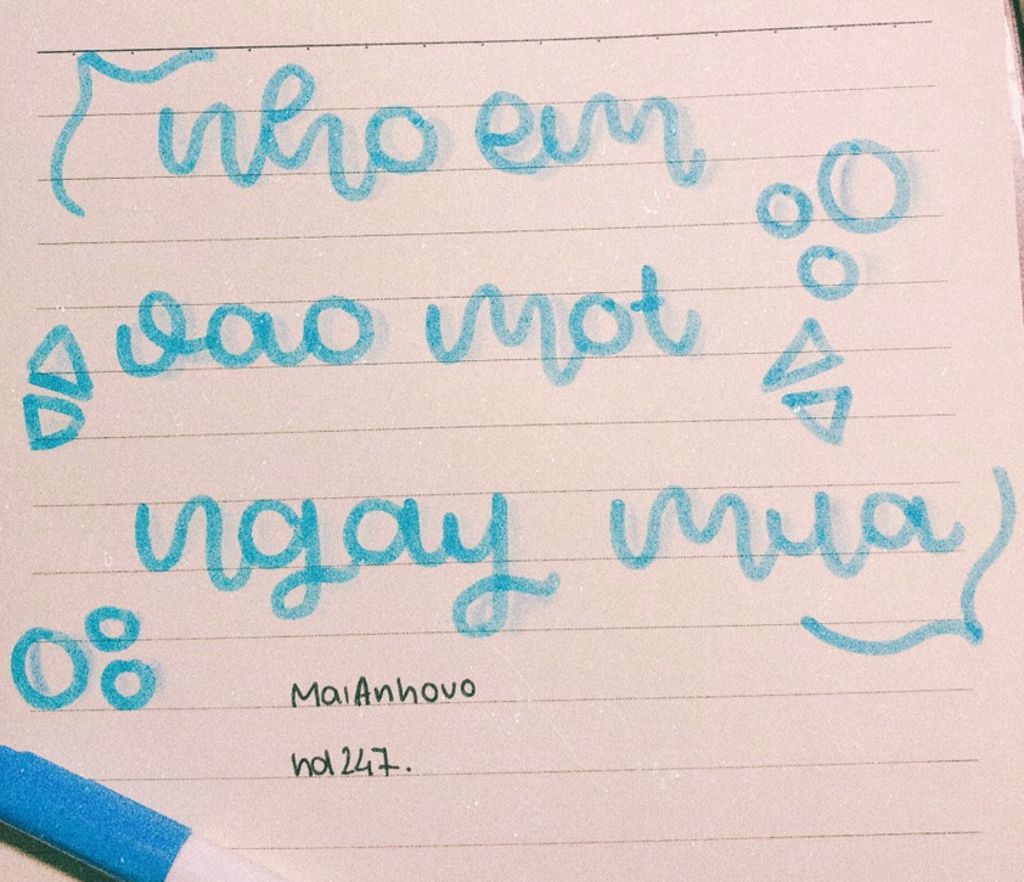 nho em
vao mot
ngay mua
MaiAnhovo
hd247.